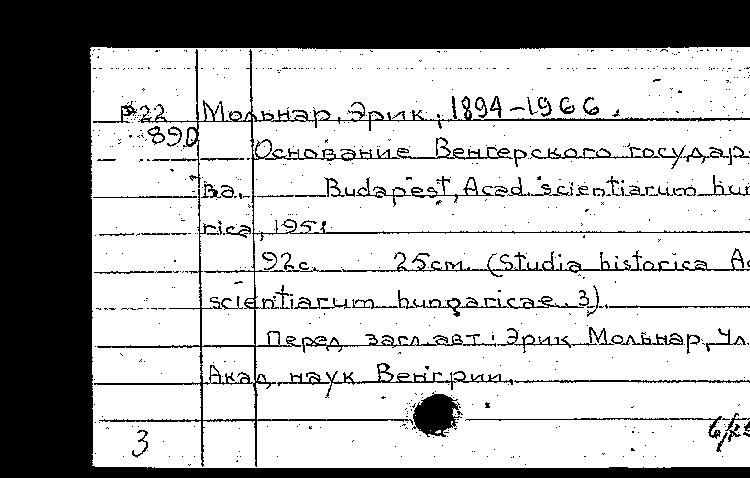 P22 Мольнар, Эрик, 1894-1966.
890 Основание Венгерского государ
ва. Budapest, Acad. scientiarum hun
rica, 1951
92с. 25cm. (Studia historica Ac
scientiarum hungaricae. 3).
Перед загл. авт: Эрик Мольнар, Чл.
Акад. наук Венгрии.
3